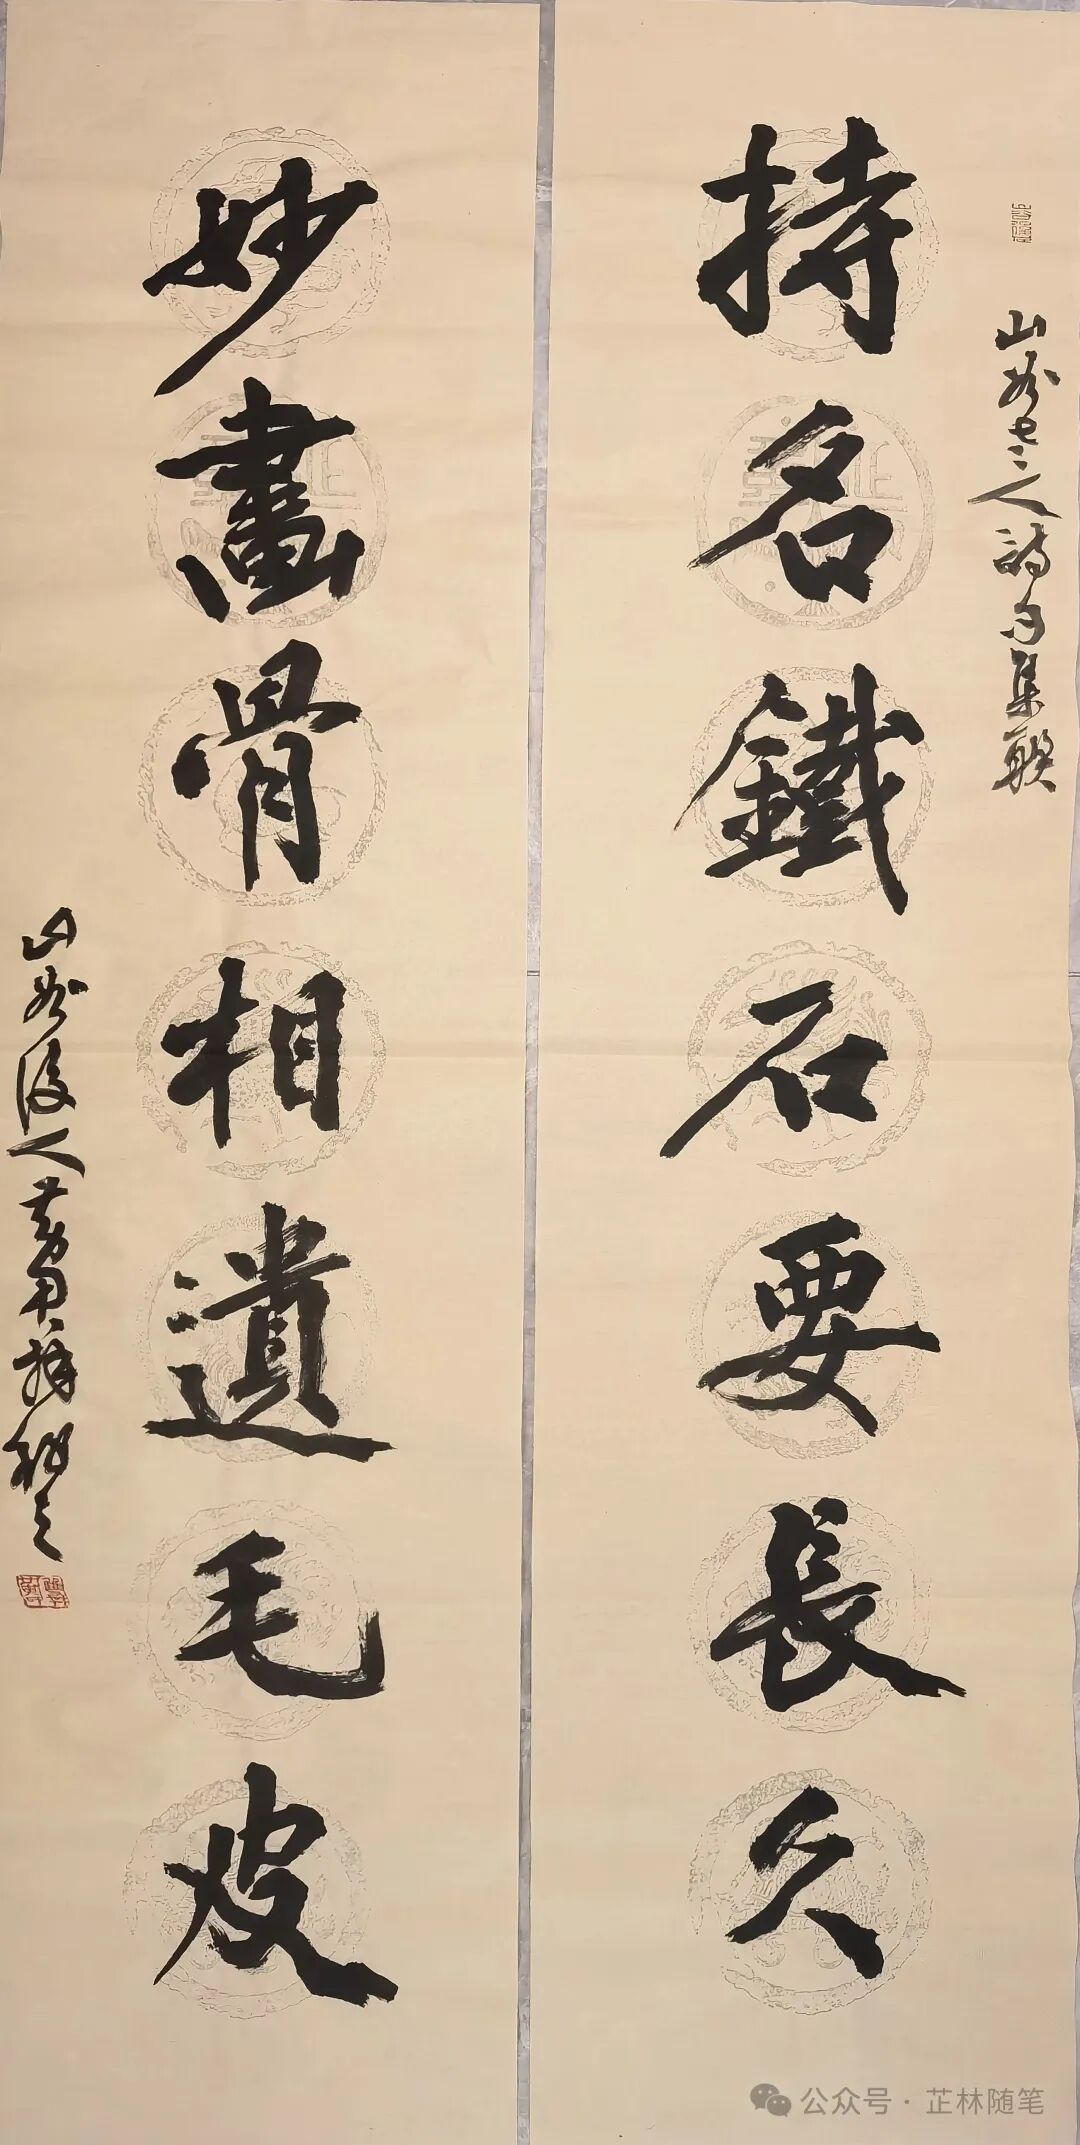 山谷老人詩句集聯
持名鐵石要長久
妙畫骨相遺毛皮
山谷後人黃君
公众号·芷林随笔